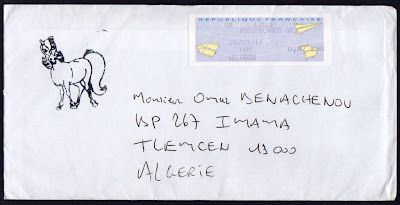 REPUBLIQUE FRANÇAISE
LILLE
Monsieur Omar BENACHENOU
BP 267 IMAMA
TLEMCEN 13000
ALGERIE